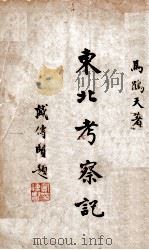 馬鶴天著
東北考察記
戴傳賢題